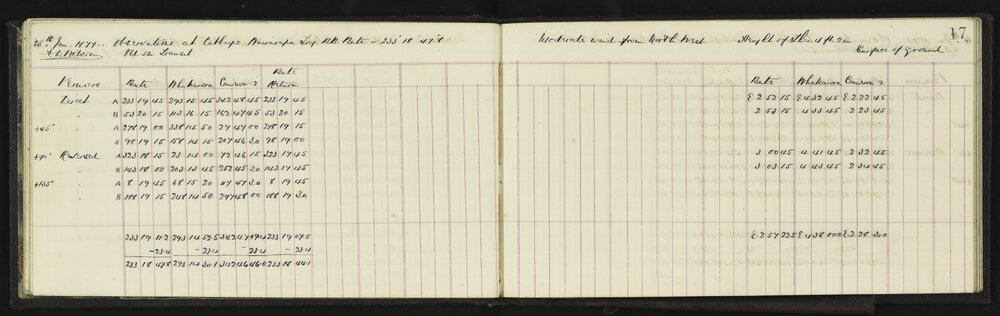 26th Jan. 1877 Observations at Cabbage, Wairarapa Trig. Ref. Bate = 233° 18' 47"8 Moderate wind from North West Height of Thn. 4 ft. 2 in 17
A. C. Wilson Obt 5in Transit Surface of Ground
Verniers Bate Whakaroa Cameron 2 Bate Return Bate Whakaroa Cameron 2
Direct A 233 19 45 293 15 45 342 48 45 233 19 45 E 2 52 15 E 4 32 45 E 2 22 45
" B 53 20 15 113 16 15 162 47 45 53 20 15 2 53 15 4 33 45 2 23 45
+45° " A 278 19 00 338 14 50 27 47 00 278 19 15
" B 98 19 15 158 14 15 207 46 30 98 19 00
+90° Reversed A 323 18 15 23 14 00 72 46 15 323 17 45 3 00 45 4 41 45 2 32 45
" B 143 18 00 203 13 45 252 45 30 143 17 45 3 03 15 4 43 45 2 34 45
+135° " A 8 19 45 68 15 20 117 47 30 8 19 45
" B 188 19 15 248 14 50 297 48 00 188 19 30
233 19 11.2 293 14 52.5 342 47 09.4 233 19 07.5 E 2 57 22.5 E 4 38 00.0 E 2 28 30.0
-23.4 -23.4 -23.4 -23.4
233 18 47.8 293 14 30.1 342 46 46.0 233 18 44.1